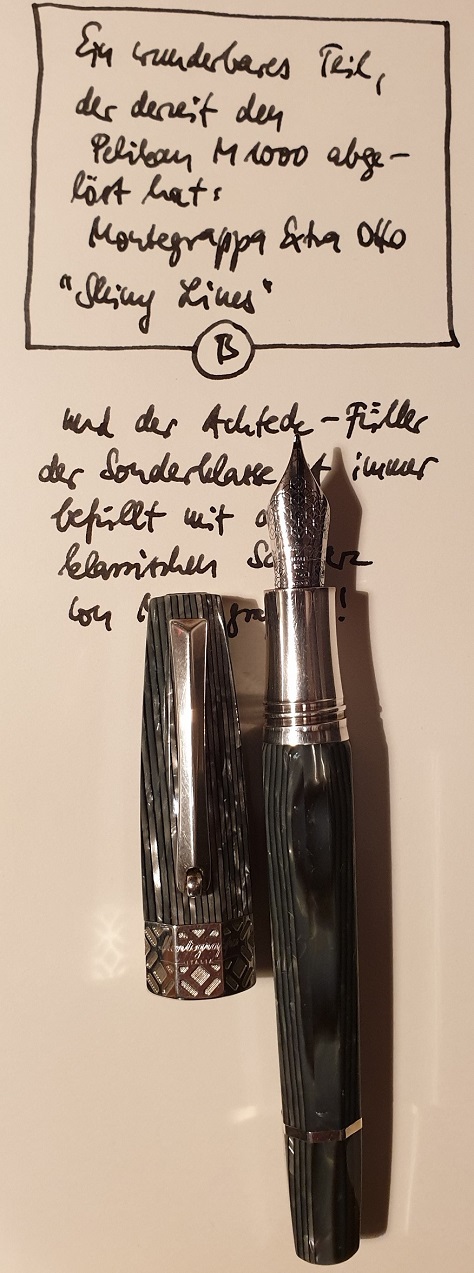 Ein wunderbares Teil,
der derzeit den
Pelikan M 1000 abge-
löst hat:
Montegrappa Extra Otto
"Shiny Lines"
B
und der Achteck-Füller
der Sonderklasse immer
befüllt mit
klassischen
von !
Montegrappa
ITALIA